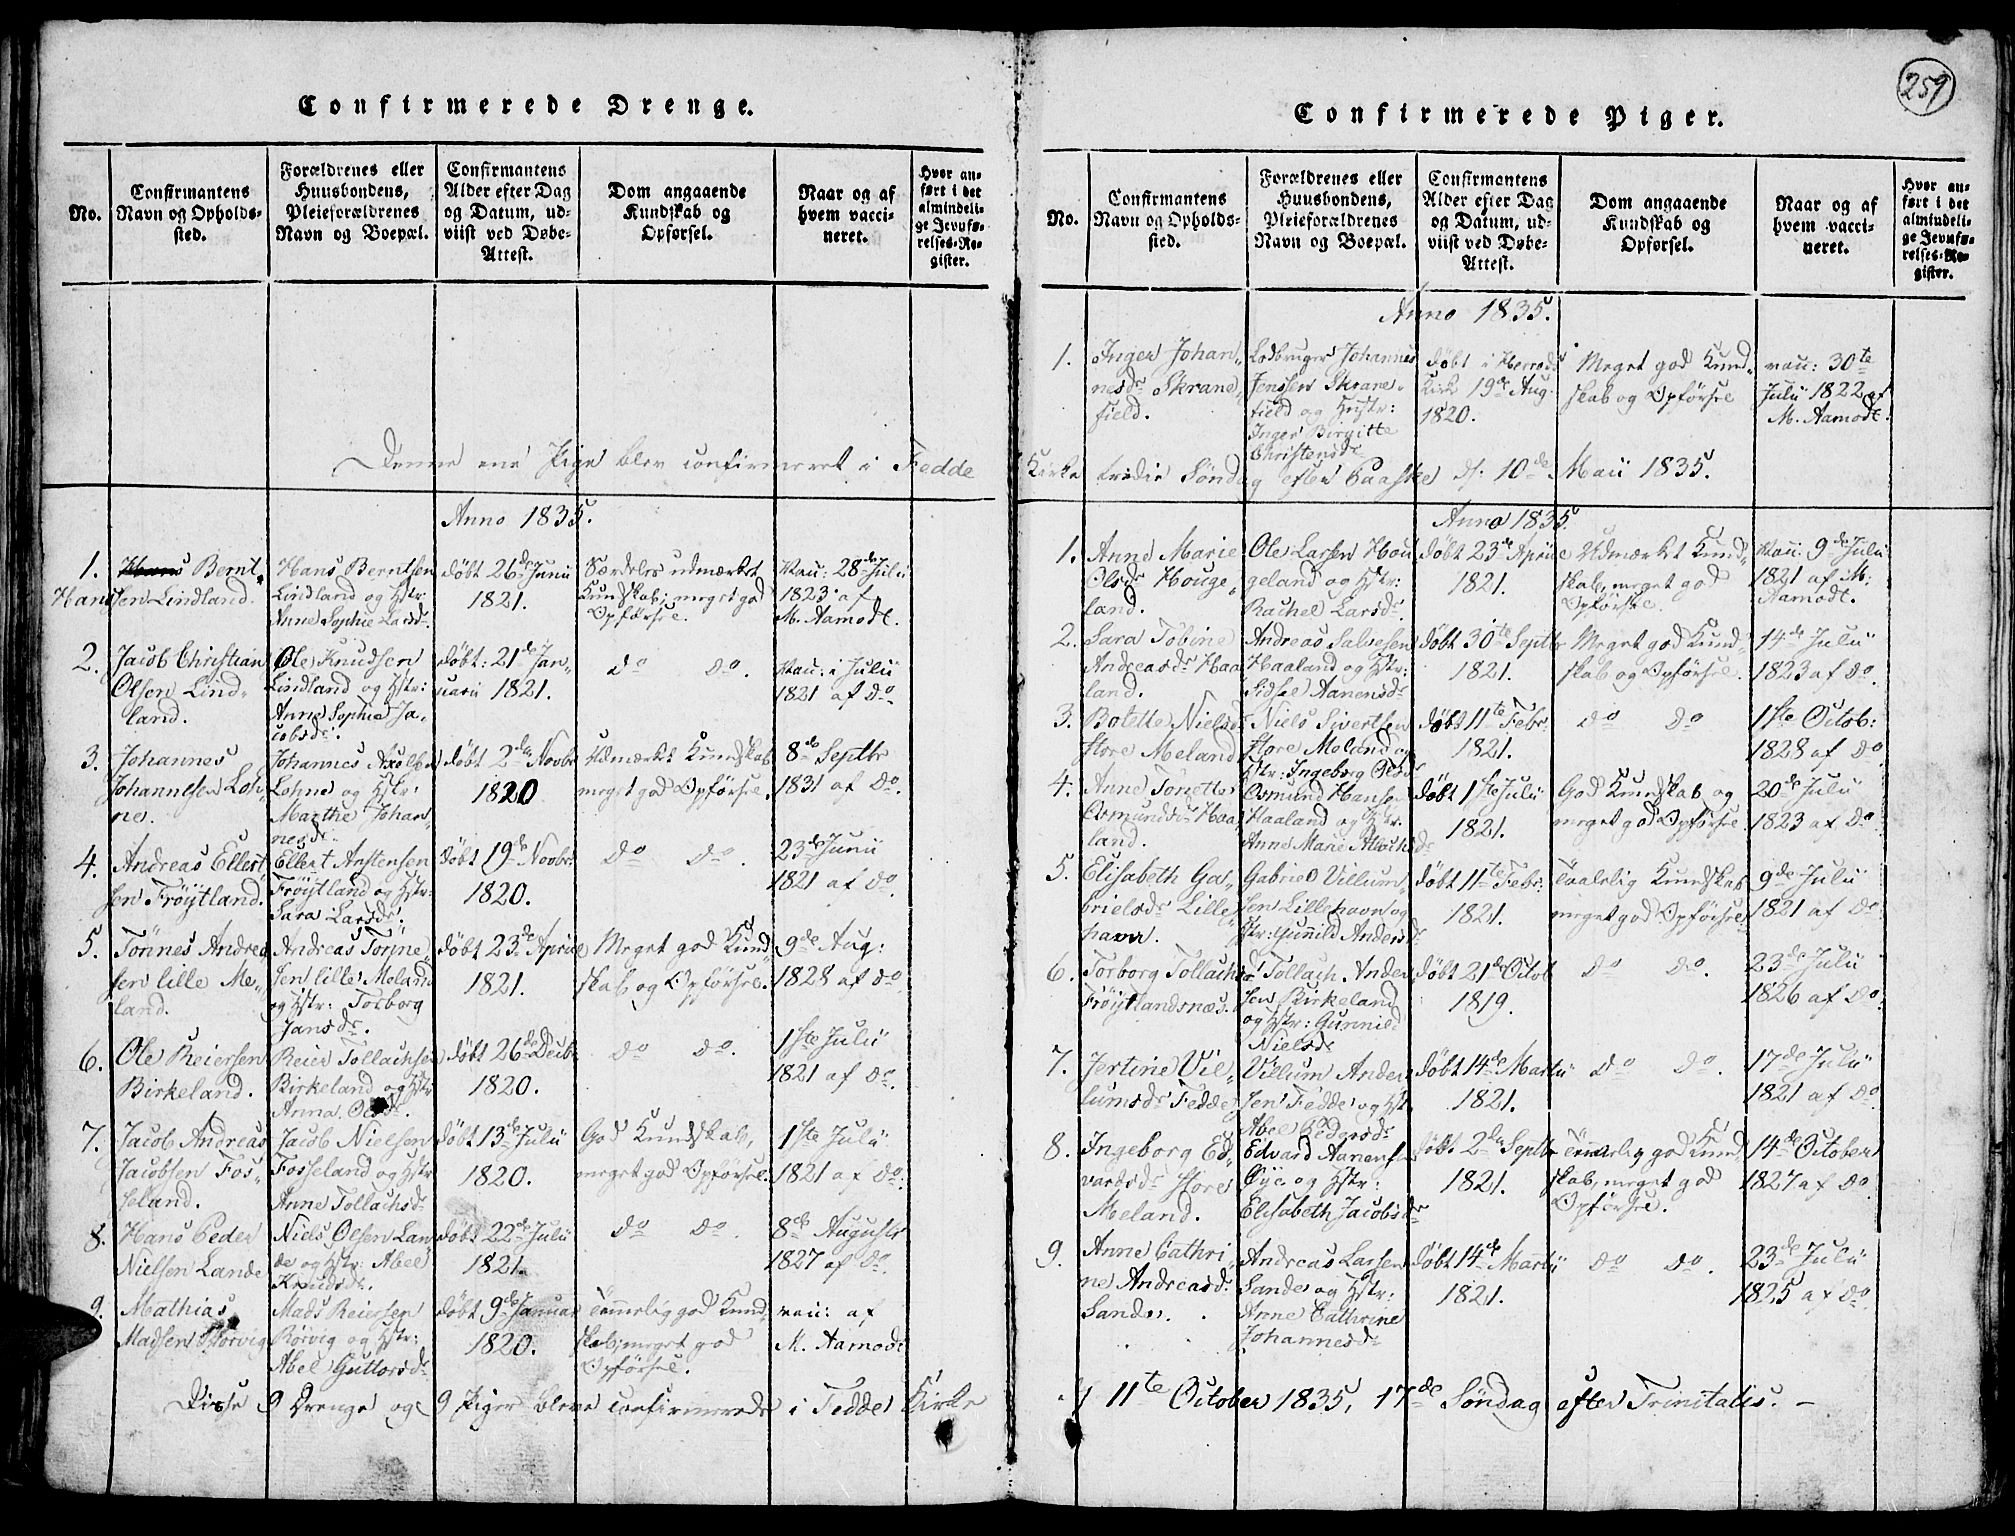 259
Confirmerede Drenge.
No.
Confirmantens
Navn og Opholds-
sted.
Forældrenes eller
Huusbondens,
Pleieforældrenes
Navn og Boepæl.
Confirmantens
Alder efter Dag
og Datum, ud-
viist ved Døbe-
Attest.
Dom angaaende
Kundskab og
Opførsel.
Naar og af
hvem vacci-
neret.
Hvor an-
ført i det
almindeli-
ge Jevnfø-
relses-Re-
gister.
Denne ene Pige blev confirmeret i Fedde
Anno 1835.
1.
Hans Bernt
Hansen Lindland.
Hans Berntsen
Lindland og Hstr
Anne Sophie Larsdr.
døbt 26de Junii
1821.
Særdeles udmærket
Kundskab; meget god
Opførsel.
vac: 28de Julii
1823 af
M. Aamodt.
2.
Jacob Christian
Olsen Lind-
land.
Ole Knudsen
Lindland og Hstr:
Anne Sophie Ja-
cobsdr.
døbt: 21de Jan-
uarii 1821.
do do.
vac: i Julii
1821 af do.
3.
Johannes
Johannesen Loh-
ne.
Johannes Axelsen
Lohne og Hstr:
Marthe Johan-
nesdr.
døbt 2den Novbr
1820
Udmærket Kundskab
meget god Opførsel.
8de Septbr
1831 af do.
4.
Andreas Ellert-
sen Frøytland.
Ellert Anstensen
Frøytland og Hstr:
Sara Larsdr.
døbt 19de Novbr:
1820.
do do.
23de Junii
1821 af do.
5.
Tönnes Andrea-
sen lille Me-
land.
Andreas Tönne-
sen lille Meland
og Hstr: Torborg
Jansdr.
døbt 23de Aprile
1821.
Meget god Kund-
skab og Opførsel.
9de Aug:
1828 af do.
6.
Ole Reiersen
Birkeland.
Reier Tollachsen
Birkeland og Hstr
Anna Olsdr.
døbt 26de Decbr
1820.
do do.
1ste Julii
1821 af do.
7.
Jacob Andreas
Jacobsen Fos-
seland.
Jacob Nielsen
Fosseland og Hstr
Anne Tollachsdr
døbt 13de Julii
1820.
God Kundskab,
meget god Opførsel.
1ste Julii
1821 af do.
8.
Hans Peder
Nielsen Lande
Niels Olsen Lan-
de og Hstr: Abel
Knudsdr.
døbt 22de Julii
1821.
do do.
8de Augustii
1827 af do.
9.
Mathias
Madsen Rørvig
Mads Reiersen
Rørvig og Hstr:
Abel Guttorsdr
døbt 9de Januar
1820.
Temmelig god Kund-
skab, meget god
Opførsel.
vac: af
M. Aamodt
Disse 9 Drenge og 9 Piger bleve confirmerede i Fedde Kirke
Confirmerede Piger.
No.
Confirmantens
Navn og Opholds-
sted.
Forældrenes eller
Huusbondens,
Pleieforældrenes
Navn og Boepæl.
Confirmantens
Alder efter Dag
og Datum, ud-
viist ved Døbe-
Attest.
Dom angaaende
Kundskab og
Opførsel.
Naar og af
hvem vacci-
neret.
Hvor an-
ført i det
almindeli-
ge Jevnfø-
relses-Re-
gister.
Anno 1835.
1.
Inger Johan-
nesdr Skrane-
field.
Lodbruger Johannes
Jenssen Skrane-
field og Hustr:
Inger Birgitte
Christensdr
døbt i Herreds
Kirke 19de Aug:
1820.
Meget god Kund-
skab og Opførsel
vac: 30te
Julii 1822 af
M. Aamodt.
Kirke tredie Søndag efter Paaske d: 10de Maii 1835.
Anno 1835.
1.
Anne Marie
Olsdr Houge-
land.
Ole Larsen Hou
geland og Hstr:
Rachel Larsdr
døbt 23de Aprile
1821.
Udmærket Kund-
skab, meget god
Opførsel.
vac: 9de Julii
1821 af M:
Aamodt.
2.
Sara Tobine
Andreasdr Haa
land.
Andreas Salvesen
Haaland og Hstr:
Sidsel Aanensdr
døbt 30te Septbr
1821.
Meget god Kund-
skab og Opførsel.
14de Julii
1823 af do.
3.
Botette Nielsdr
store Meland
Niels Sivertsen
store Meland og
Hstr: Ingeborg Olsdr
døbt 11te Febr:
1821.
do do
1ste Octob:
1828 af do
4.
Anne Tonette
Osmundsdr Haa-
land.
Osmund Hansen
Haaland og Hstr:
Anne Marie
døbt 1ste Julii
1821.
God Kundskab og
meget god Opførsel.
20de Julii
1823 af do
5.
Elisabeth Ga-
brielsdr Lille-
havn.
Gabriel Villum-
sen Lillehavn og
Hstr: Gunnild Andersdr
døbt 11te Febr:
1821.
Taalelig Kundskab
meget god Opførsel
9de Julii
1821 af do
6.
Torborg Tollachsdr
Frøytlandsnæs.
Tollach Ander
sen Birkeland
og Hstr: Gunnild
Nielsdr
døbt 21de Octob
1819.
do do.
23de Julii
1826 af do.
7.
Jertine Vil-
lumsdr Fedde
Villum Ander-
sen Fedde og Hstr
Abel Pedersdr
døbt 14de Martii
1821.
do do.
17de Julii
1821 af do
8.
Ingeborg Ed-
vardsdr store
Meland.
Edvard Aanensen
Øye og Hstr:
Elisabeth Jacobsdr
døbt 2den Septbr
1821.
Temmelig god Kund
skab, meget god
Opførsel.
14de October
1827 af do
9.
Anne Cathri
ne Andreasdr
Sande.
Andreas Larsen
Sande og Hstr:
Anne Cathrine
Johannesdr
døbt 14de Martii
1821.
do do.
23de Julii
1825 af do.
d 11te October 1835, 17de Søndag efter Trinitatis.